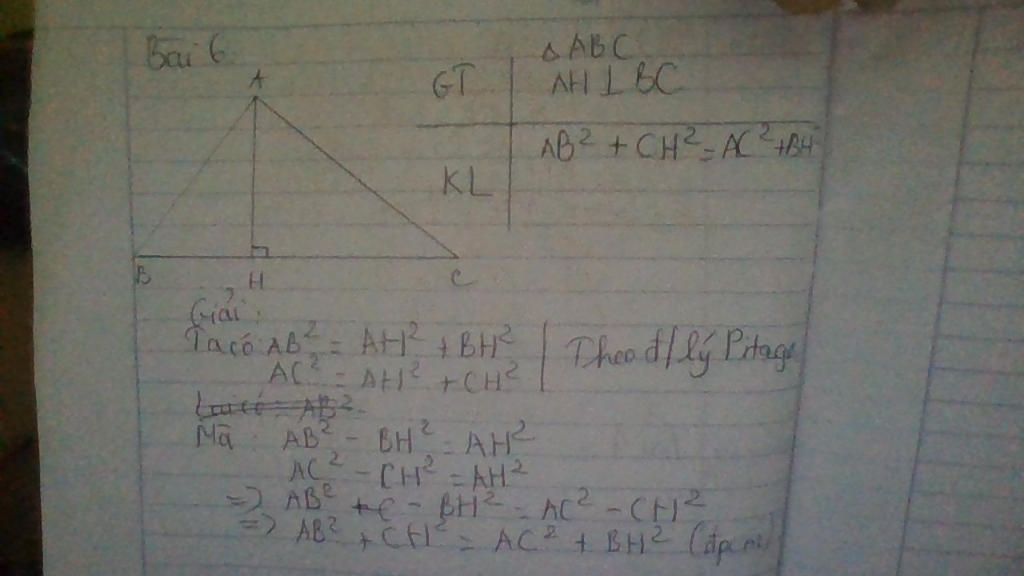 Bài 6
GT
△ ABC
AH ⊥ BC
KL
AB² + CH² = AC² + BH²
A
B
H
C
Giải:
Ta có AB² = AH² + BH²
AC² = AH² + CH²
Theo đ/lý Pitago
Mà: AB² - BH² = AH²
AC² - CH² = AH²
=> AB² - BH² = AC² - CH²
=> AB² + CH² = AC² + BH² (đpcm)